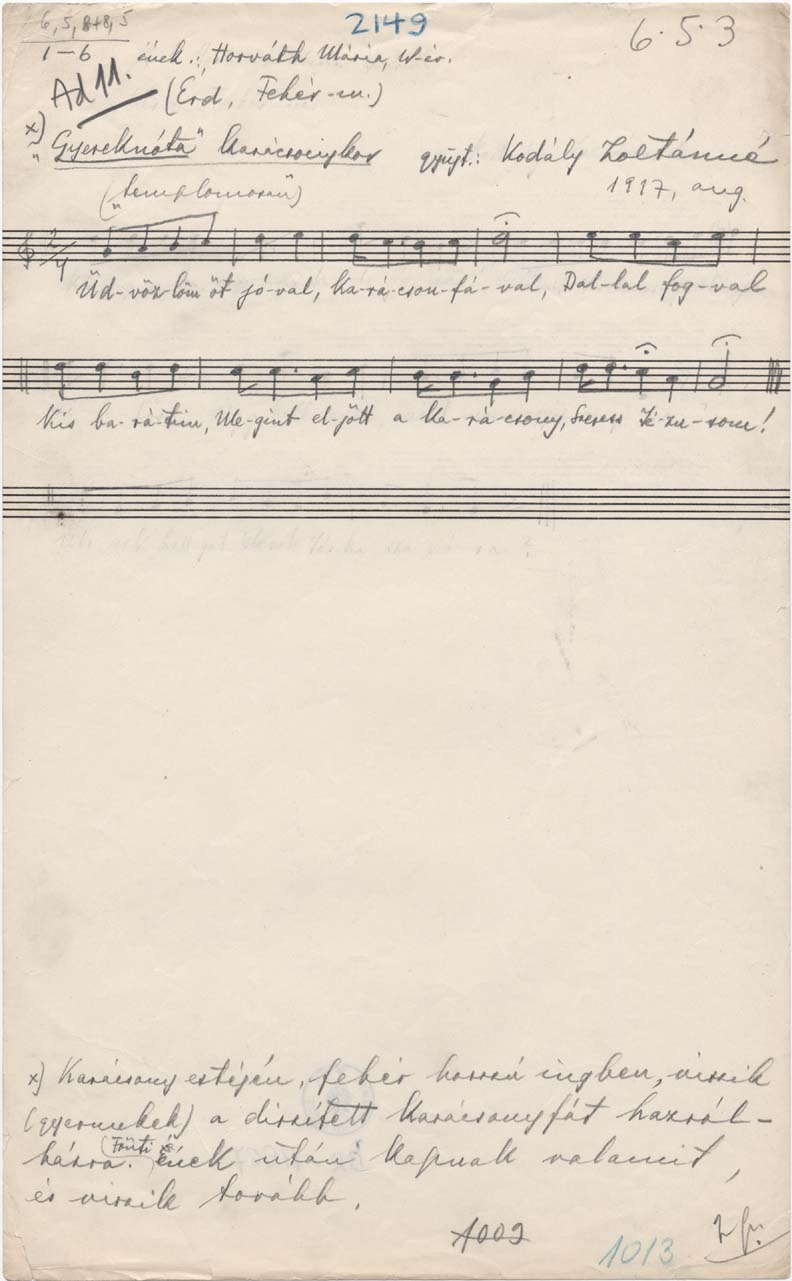 6, 5, 8+8, 5
2149
6·5·3
1–6 ének.: Horváth Mária, 10 év.
Ad 11.
(Érd, Fehér-m.)
x) „Gyereknóta" karácsonykor gyűjt.: Kodály Zoltánné
(„templomosan") 1917, aug.
2/4
Üd-vöz-löm őt jó-val, Ka-rá-cson-fá-val, Dal-lal fog-val
Kis ba-rá-tim, Me-gint el-jött a Ka-rá-csony, Szeress Jé-zu-som!
x) Karácsony estéjén, fehér hosszú ingben, viszik
(gyermekek) a díszített Karácsonyfát házról-
házra. (Fönti) ének után kapnak valamit,
és viszik tovább.
1002
1013